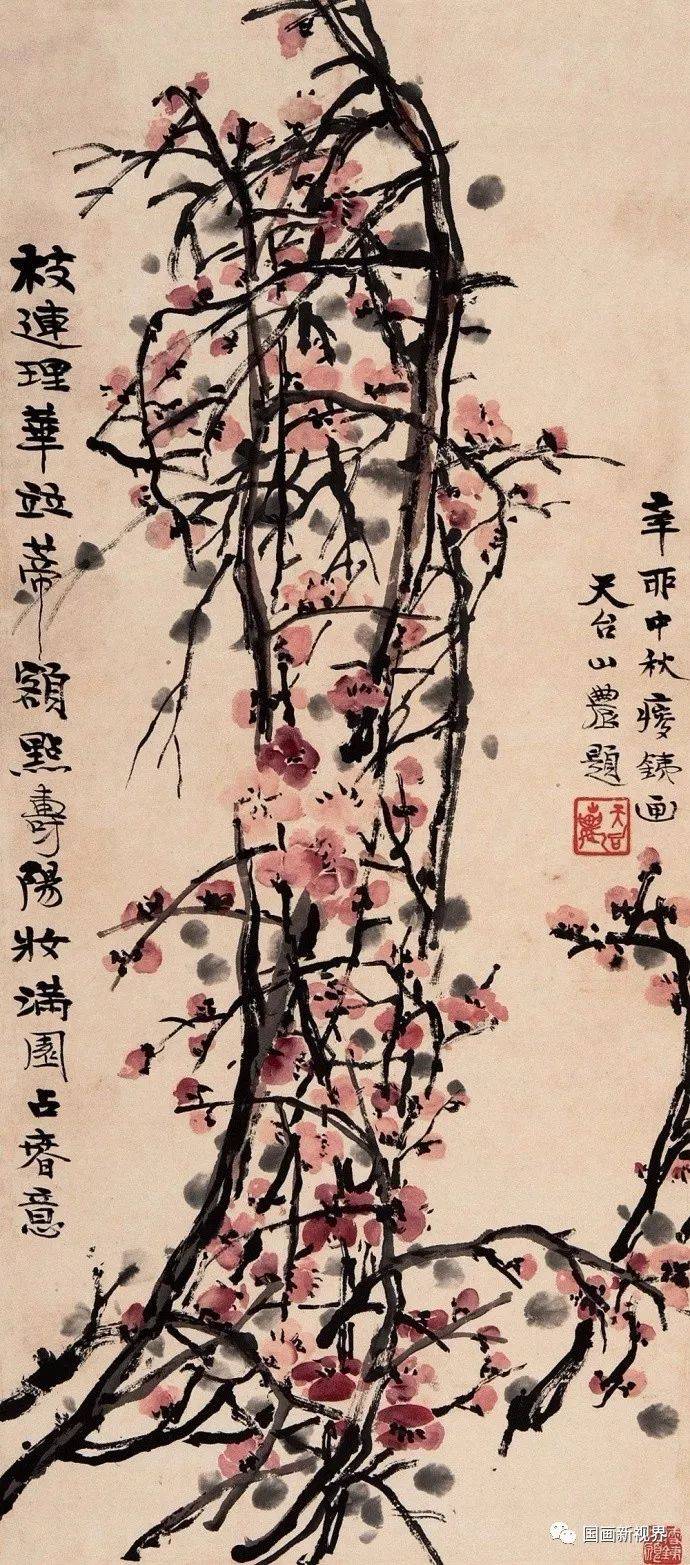 辛丣中秋瘦銕画
天台山農題
天台山農
枝連理華竝蒂額點壽陽妝滿園占春意
国画新视界